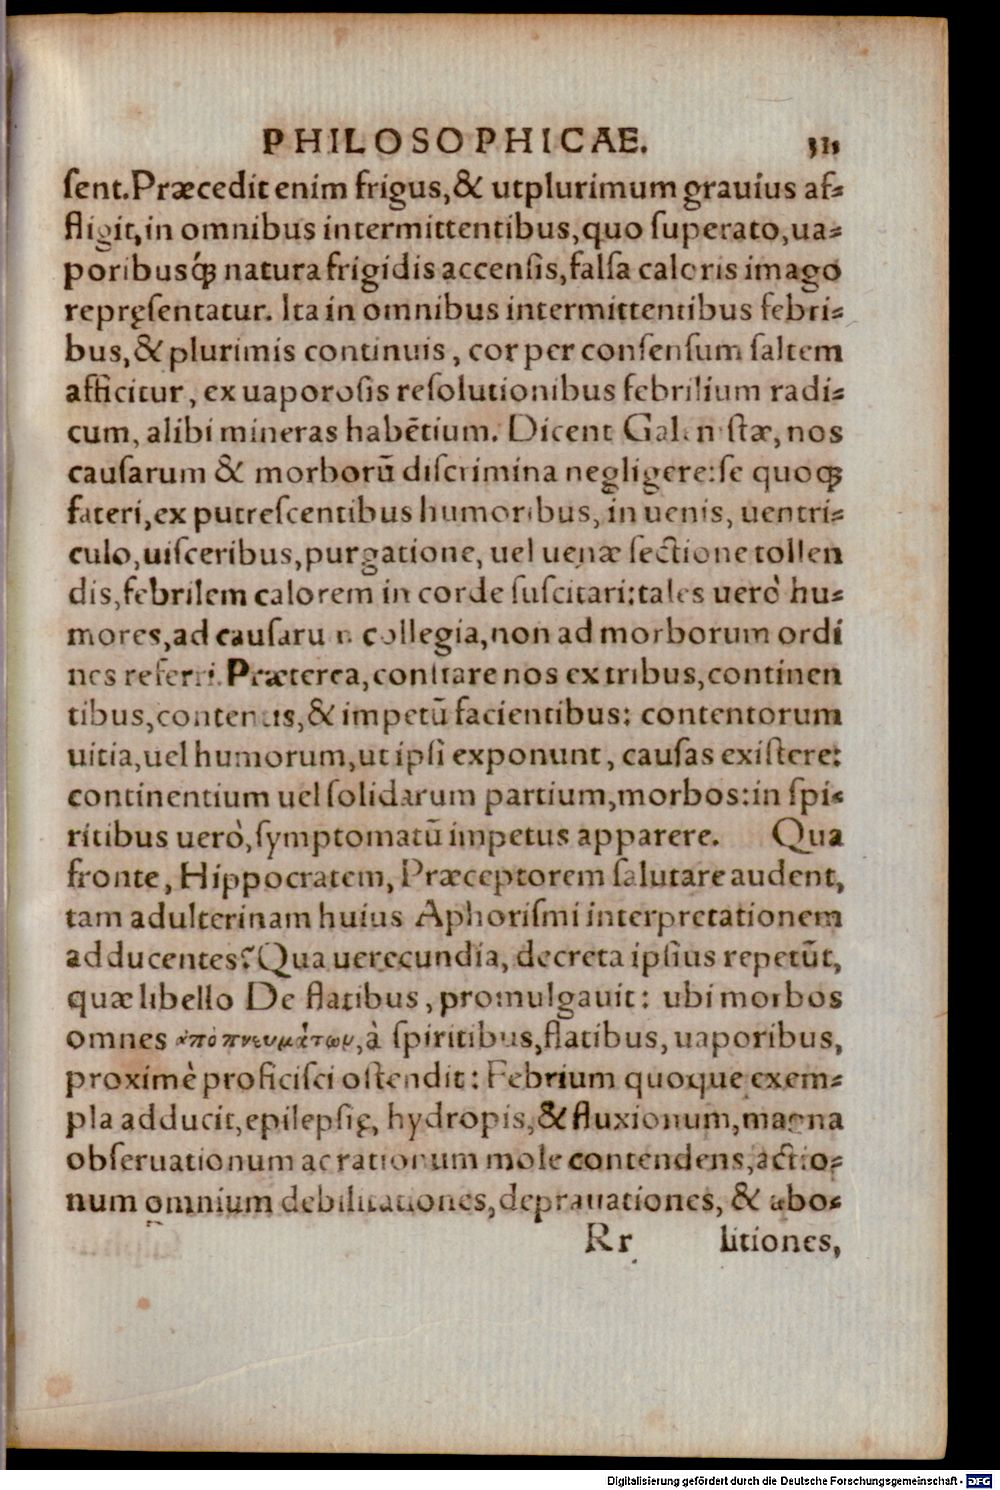 PHILOSOPHICAE. 311
ſent. Præcedit enim frigus, & utplurimum grauius af⸗
fligit, in omnibus intermittentibus, quo ſuperato, ua⸗
poribusq́ꝫ natura frigidis accenſis, falſa caloris imago
repręſentatur. Ita in omnibus intermittentibus febri⸗
bus, & plurimis continuis, cor per conſenſum ſaltem
afficitur, ex uaporoſis reſolutionibus febrilium radi⸗
cum, alibi mineras habētium. Dicent Galeniſtæ, nos
cauſarum & morborū diſcrimina negligere: ſe quoqꝫ
fateri, ex putreſcentibus humoribus, in uenis, uentri⸗
culo, uiſceribus, purgatione, uel uenæ ſectione tollen
dis, febrilem calorem in corde ſuſcitari: tales uerò hu⸗
mores, ad cauſarum collegia, non ad morborum ordi
nes referri. Præterea, conſtare nos ex tribus, continen
tibus, contentis, & impetū facientibus: contentorum
uitia, uel humorum, ut ipſi exponunt, cauſas exiſtere:
continentium uel ſolidarum partium, morbos: in ſpi⸗
ritibus uerò, ſymptomatū impetus apparere. Qua
fronte, Hippocratem, Præceptorem ſalutare audent,
tam adulterinam huius Aphoriſmi interpretationem
adducentes? Qua uerecundia, decreta ipſius repetūt,
quæ libello De flatibus, promulgauit: ubi morbos
omnes ἀπὸ πνευμάτων, à ſpiritibus, flatibus, uaporibus,
proximè proficiſci oſtendit: Febrium quoque exem⸗
pla adducit, epilepſię, hydropis, & fluxionum, magna
obſeruationum ac rationum mole contendens, actio⸗
num omnium debilitationes, deprauationes, & abo⸗
Rr litiones,
Digitalisierung gefördert durch die Deutsche Forschungsgemeinschaft - DFG